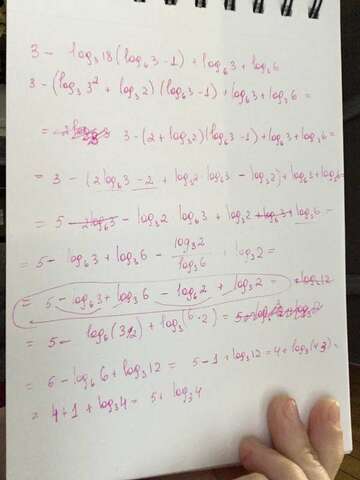 3 - log₃18(log₆3-1) + log₆3 + log₃6
3 - (log₃3² + log₃2)(log₆3-1) + log₆3 + log₃6 =
= 3-(2+log₃2)(log₆3-1)+log₆3+log₃6=
= 3 - (2log₆3-2 + log₃2·log₆3 - log₃2)+log₆3+log₃6=
= 5 - 2log₆3 - log₃2 log₆3 + log₃2 + log₆3 + log₃6 =
= 5 - log₆3 + log₃6 - log₃2/log₃6 + log₃2 =
= 5 - log₆3 + log₃6 - log₆2 + log₃2 =
= 5 - log₆(3·2) + log₃(6·2) =
= 5 - log₆6 + log₃12 = 5-1+log₃12 = 4+log₃(4·3) =
= 4+1+log₃4 = 5+log₃4